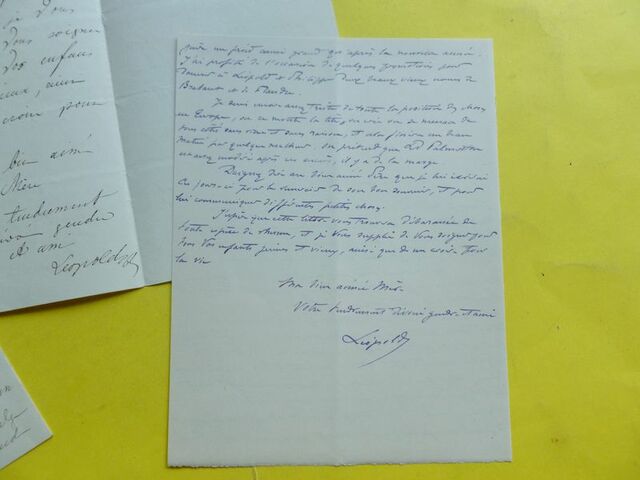 je Vous
Vous soigner
Vos enfans
eux, ainsi
crois pour
bien aimé
Mère
tendrement
gendre
et ami
Léopold
froid aussi grand que après la nouvelle année.
J'ai profité de l'occasion de quelques pour
donner à Léopold et Philippe deux beaux vieux noms de
Brabant et de Flandre.
Je suis assez triste de toute la position des choses
en Europe, on se monte la tête, on crie on se menace de
tous côtés sans rime et sans raison, et cela finira un beau
matin par quelque malheur. On prétend que Ld Palmerston
modéré après un excès, il y a de la marge.
dire au bien aimé Père que je lui écrirai
Ces jours-ci pour le remercier de son bon souvenir, et pour
lui communiquer différentes petites choses.
J'espère que cette lettre vous trouvera débarassée de
toute espèce de rhume, et je Vous supplie de Vous soigner pour
tous Vos enfants jeunes et vieux, ainsi que de me croire pour
la vie
Ma bien aimée Mère
Votre tendrement dévoué gendre et ami
Léopold